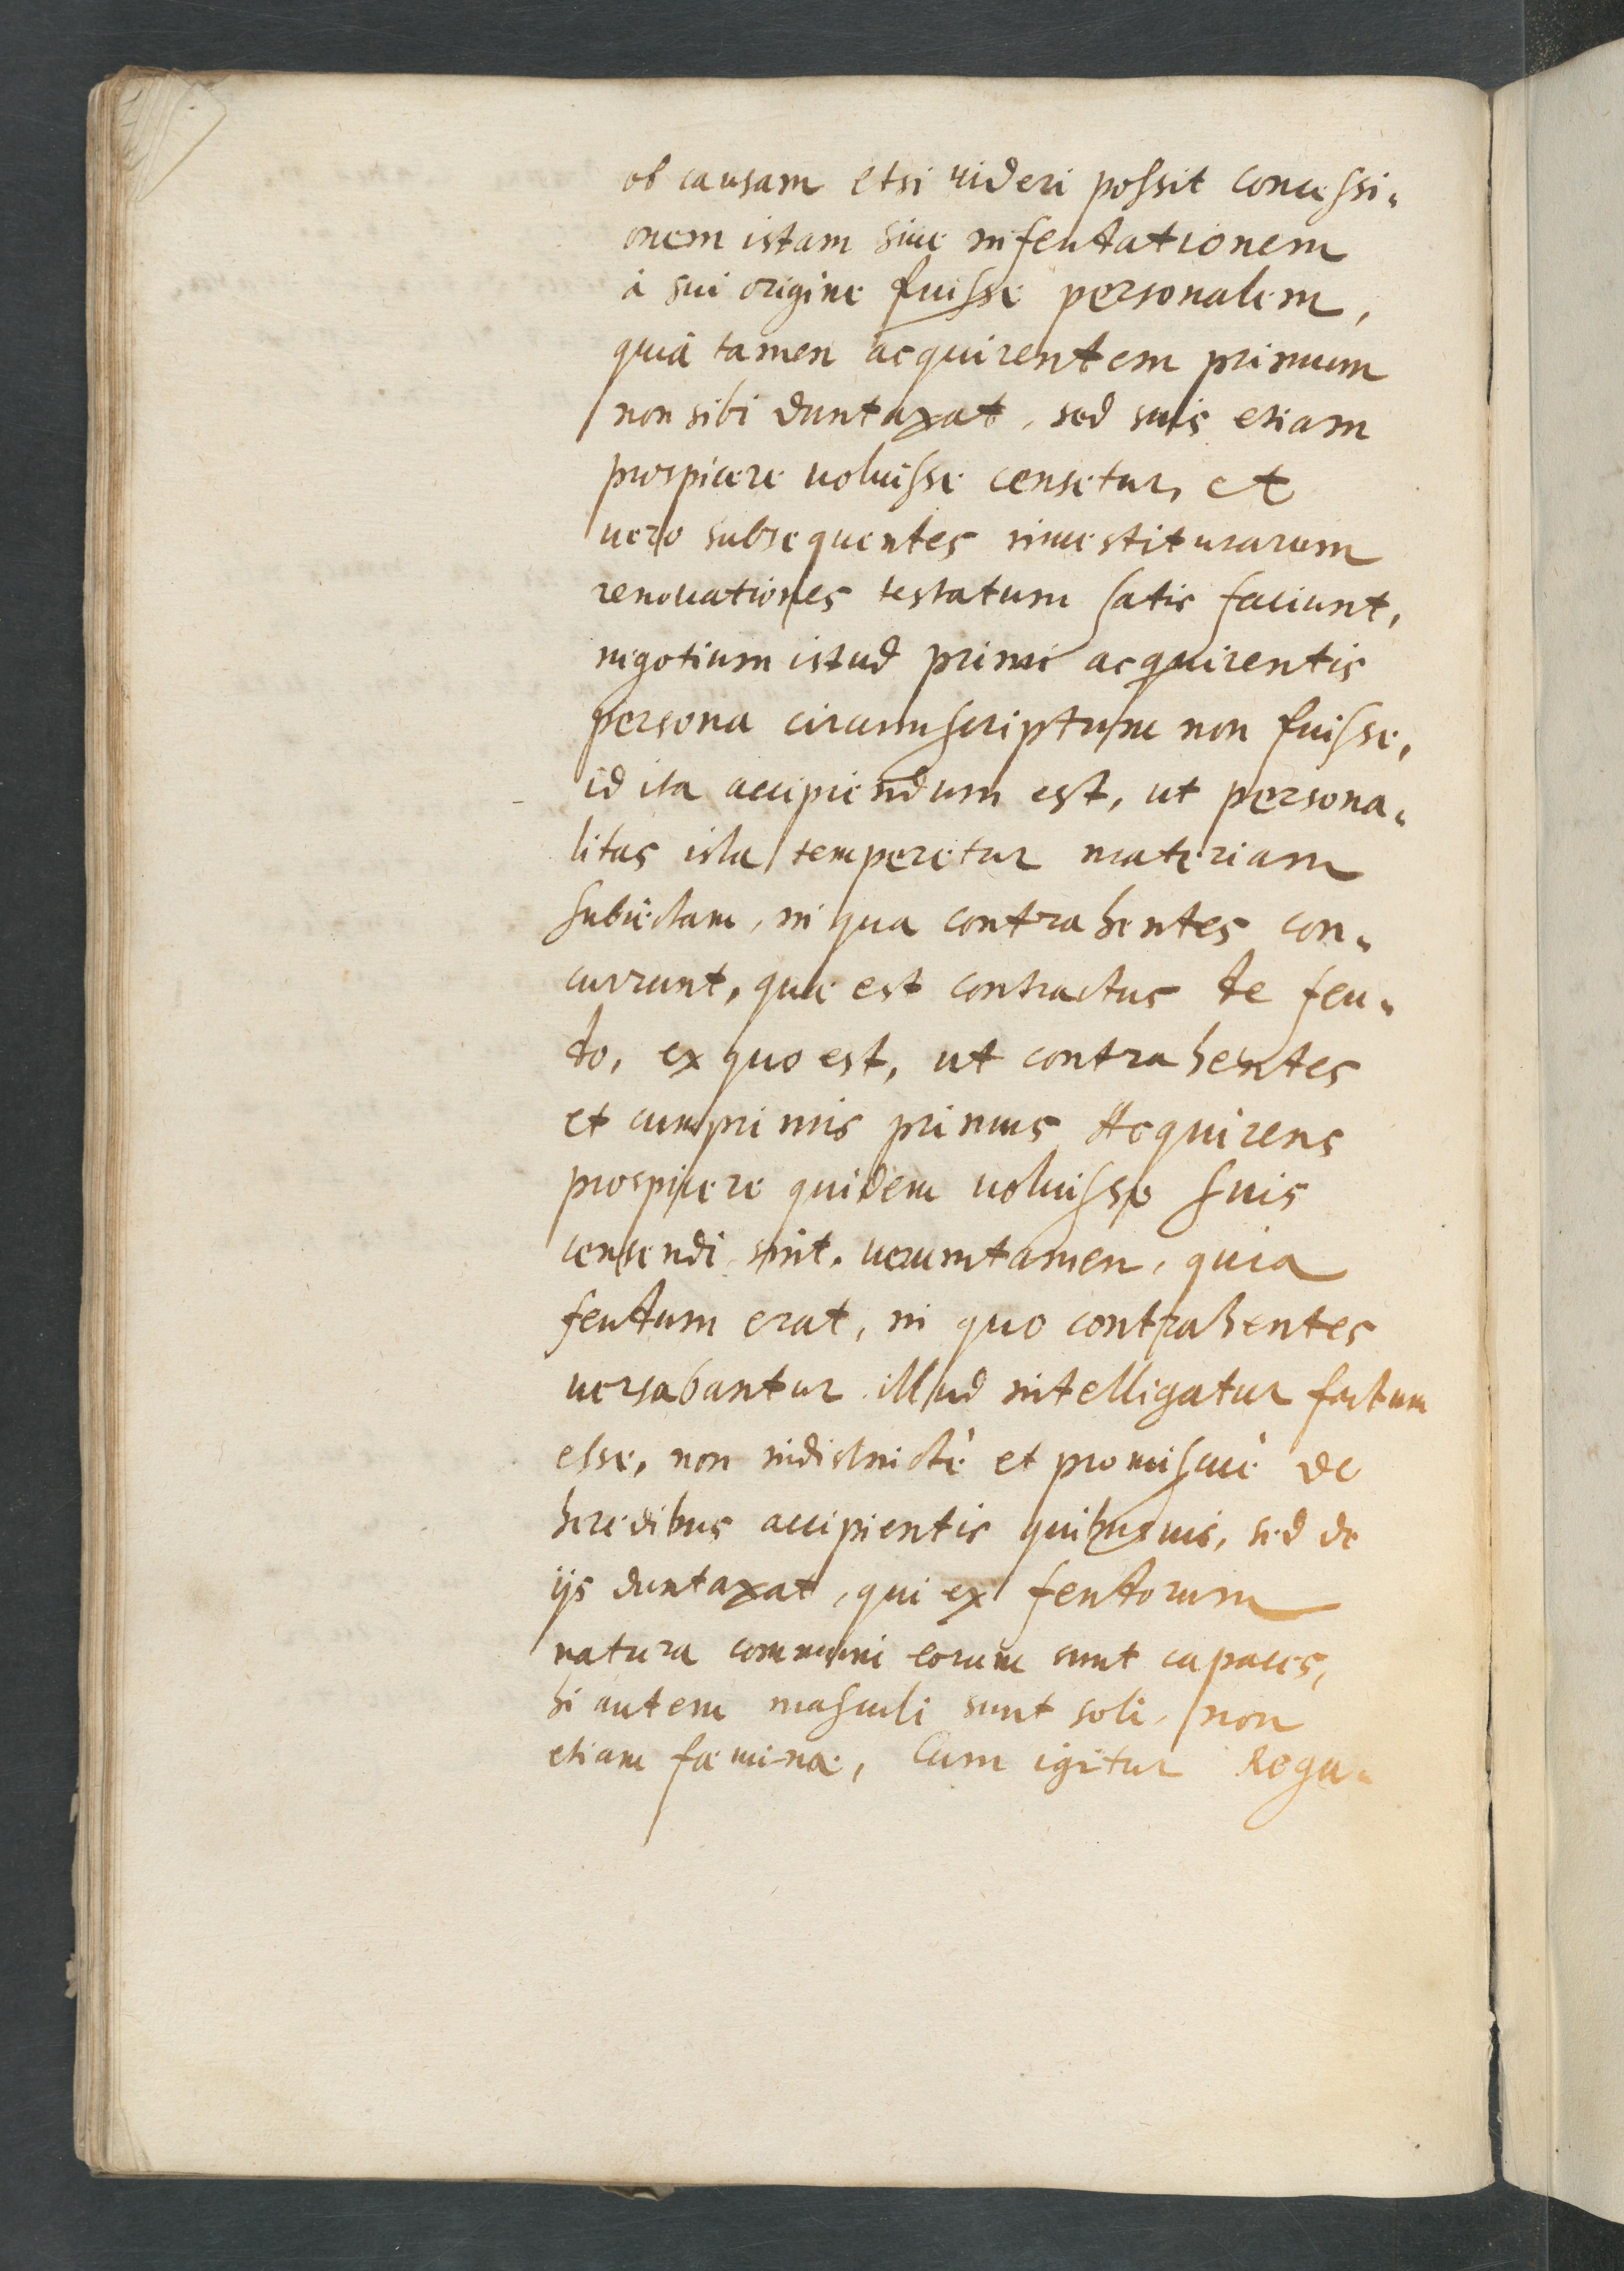 ob causam etsi uideri possit concessi-
onem istam siue infeudationem
à sui origine fuisse personalem,
quia tamen acquirentem primum
non sibi duntaxat, sed suis etiam
prospicere uoluisse censetur, et
uero subsequentes inuestiturarum
renouationes testatum satis faciunt,
negotium istud primi acquirentis
persona circumscriptum non fuisse,
id ita accipiendum est, ut persona-
litas ista temperetur materiam
subiectam, in qua contrahentes con-
currunt, quae est contractus de feu-
do, ex quo est, ut contrahentes
et cumprimis primus Acquirens
prospicere quidem uoluisse suis
censendi sint. uerumtamen, quia
feudum erat, in quo contrahentes
uersabantur illud intelligatur factum
esse, non indistinctè et promiscuè de
heredibus accipientis quibusuis, sed de
ijs duntaxat, qui ex feudorum
natura communi eorum sunt capaces,
hi autem masculi sunt soli, non
etiam faeminae, Cum igitur Regu-